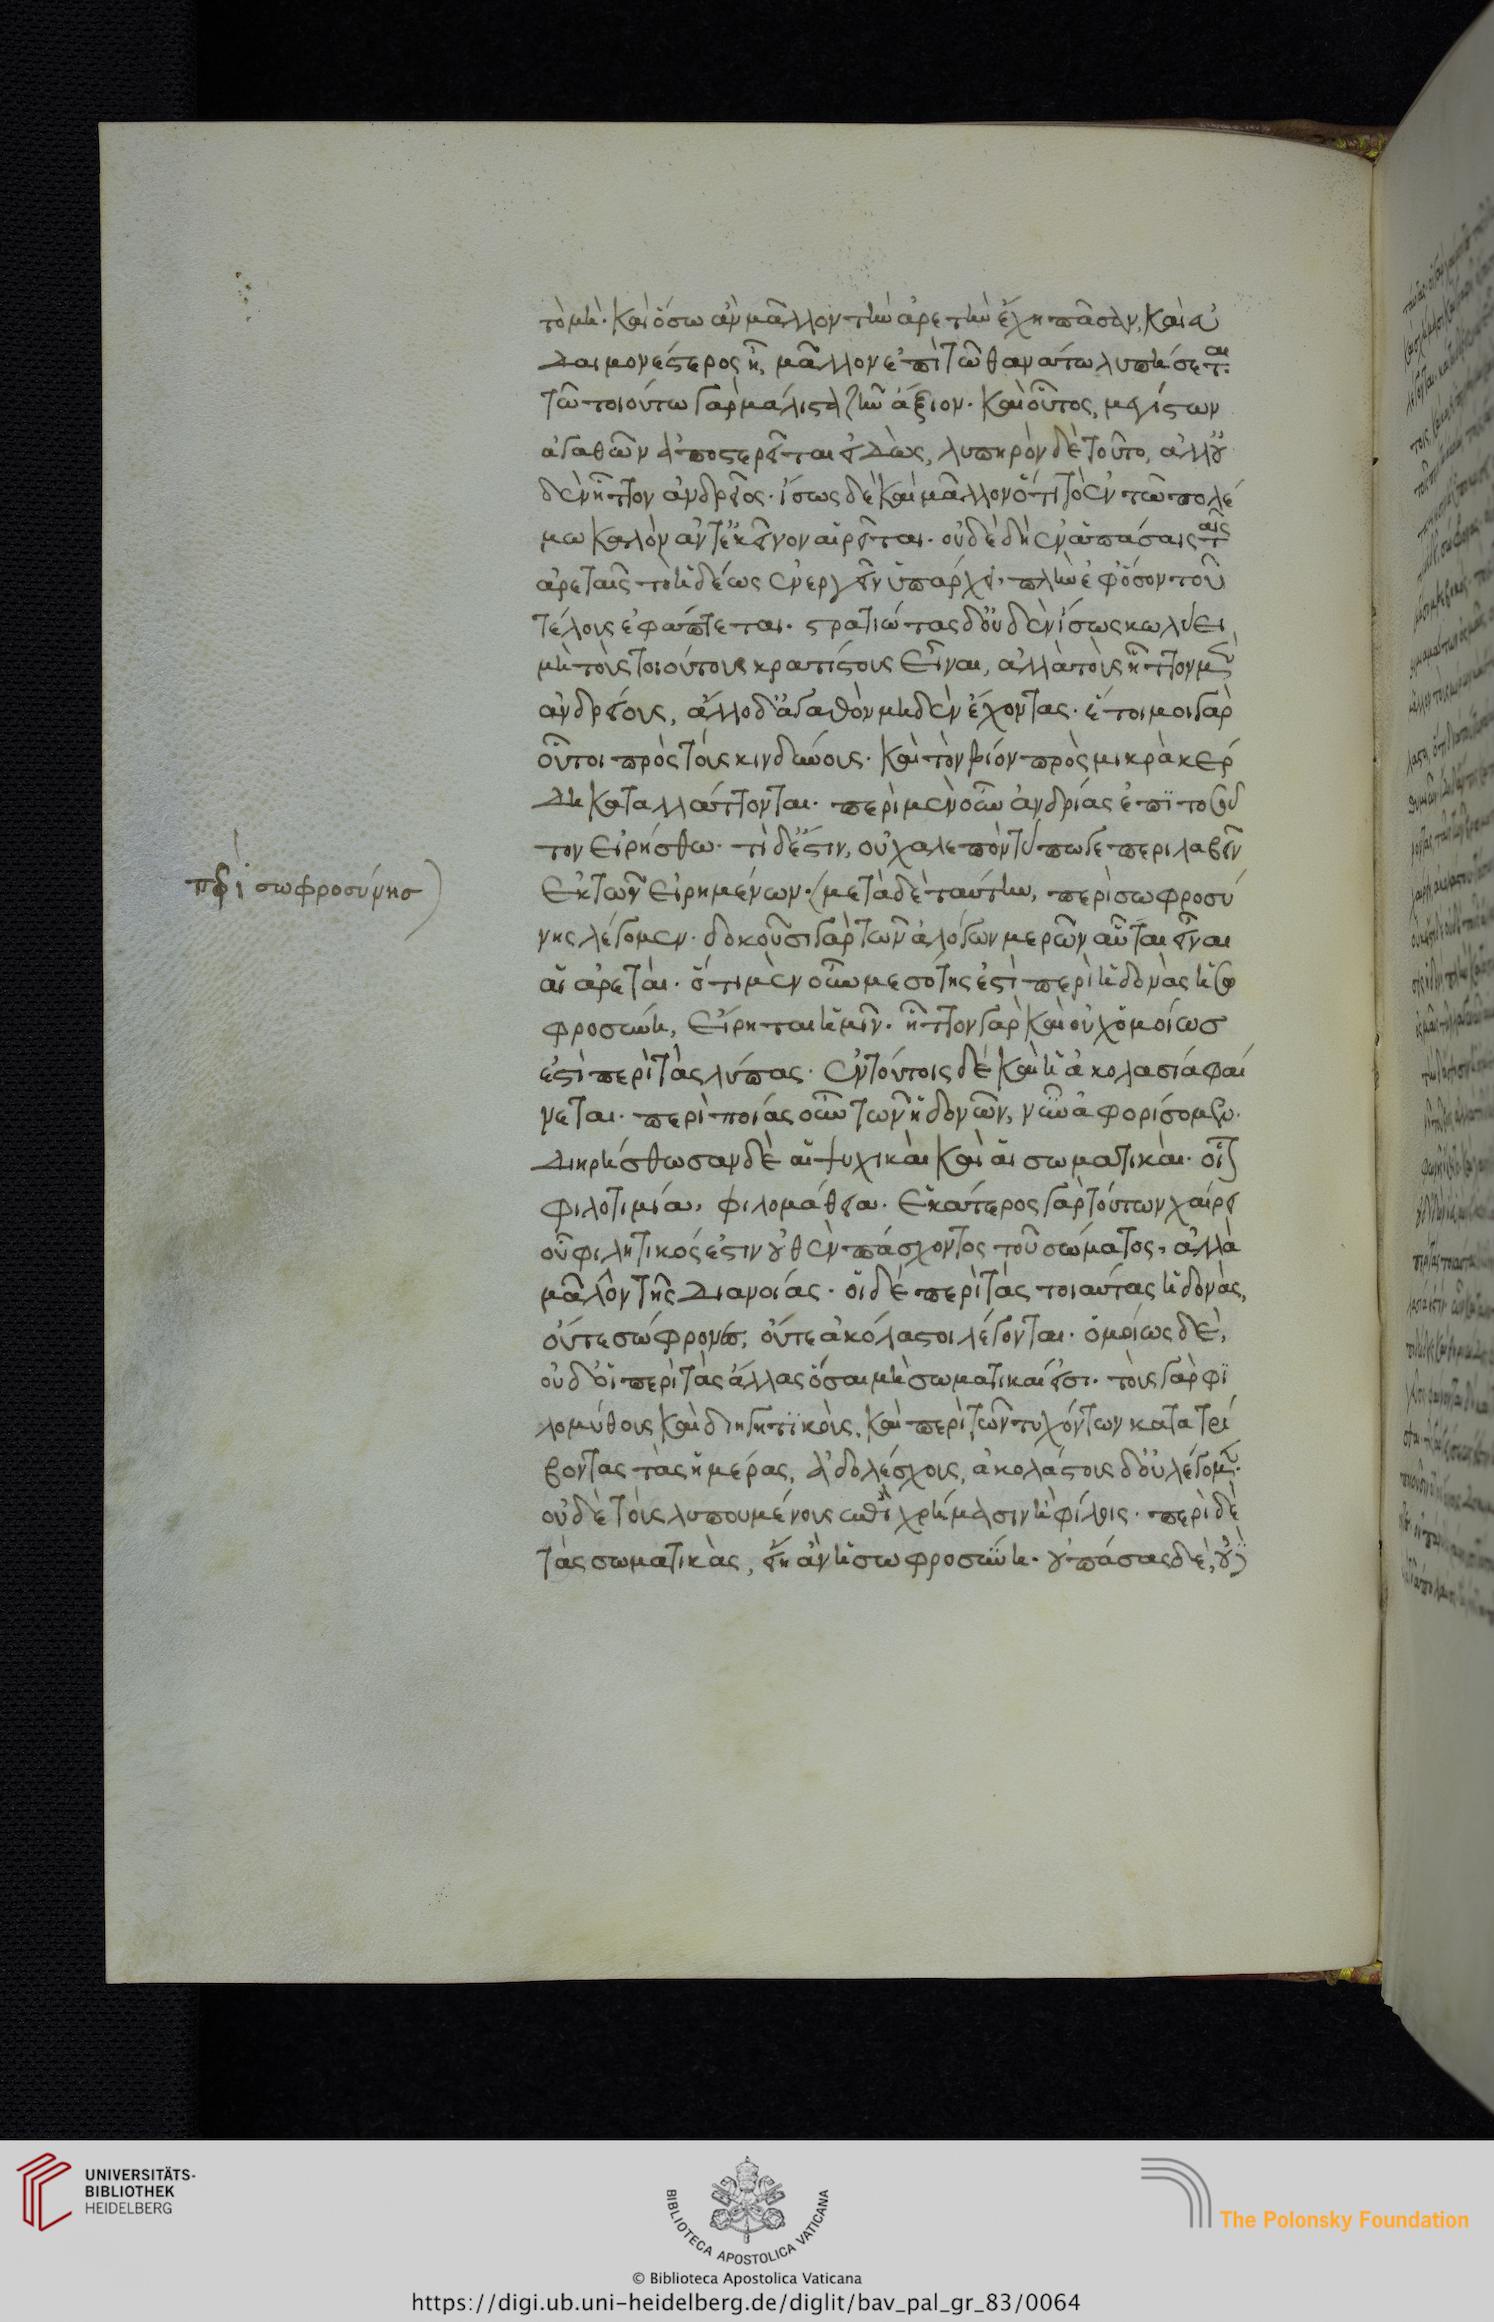 τὸ μή. καὶ ὅσω ἂν μᾶλλον τὴν ἀρετὴν ἔχη πᾶσαν, καὶ εὐ
δαιμονέστερος ἦ, μᾶλλον ἐπὶ τῶ θανάτω λυπήσεται.
τῶ τοιούτω γὰρ μάλιστα ζῆν ἄξιον. καὶ οὗτος, μεγίστων
ἀγαθῶν ἀποστερεῖται εἰδώς, λυπηρὸν δὲ τοῦτο, ἀλλ' οὐ
δὲν ἧττον ἀνδρεῖος. ἴσως δὲ καὶ μᾶλλον ὅτι τὸ ἐν τῶ πολέ
μω καλὸν ἀντ' ἐκείνων αἱρεῖται. οὐ δὲ δὴ ἐν ἁπάσαις ταῖς
ἀρεταῖς τὸ ἡδέως ἐνεργεῖν ὑπάρχει, πλὴν ἐφ' ὅσον τοῦ
τέλους ἐφάπτεται. στρατιώτας δ' οὐδὲν ἴσως κωλύει
μὴ τοὺς τοιούτους κρατίστους εἶναι, ἀλλὰ τοὺς ἧττον μὲν
ἀνδρείους, ἄλλο δ' ἀγαθὸν μηδὲν ἔχοντας. ἕτοιμοι γὰρ
οὗτοι πρὸς τοὺς κινδύνους. καὶ τὸν βίον πρὸς μικρὰ κέρ
δη καταλλάττονται. περὶ μὲν οὖν ἀνδρίας ἐπὶ τοσοῦ
τον εἰρήσθω. τί δ' ἔστιν, οὐ χαλεπὸν τύπω γε περιλαβεῖν
ἐκ τῶν εἰρημένων. μετὰ δὲ ταύτην, περὶ σωφροσύ
πρὶ σωφροσύνησ
νης λέγομεν. δοκοῦσι γὰρ τῶν ἀλόγων μερῶν αὗται εἶναι
αἱ ἀρεταί. ὅτι μὲν οὖν μεσότης ἐστὶ περὶ ἡδονὰς ἡ σω
φροσύνη, εἴρηται ἡμῖν. ἧττον γὰρ καὶ οὐχ ὁμοίωσ
ἐστὶ περὶ τὰς λύπας. ἐν τούτοις δὲ καὶ ἡ ἀκολασία φαί
νεται. περὶ ποίας οὖν τῶν ἡδονῶν, νῦν ἀφορίσομεν.
διηρήσθωσαν δὲ αἱ ψυχικαὶ καὶ αἱ σωματικαί. οἷον
φιλοτιμία, φιλομάθεια. ἑκάτερος γὰρ τούτων χαίρει
οὗ φιλητικός ἐστιν οὐθὲν πάσχοντος τοῦ σώματος, ἀλλὰ
μᾶλλον τῆς διανοίας. οἱ δὲ περὶ τὰς τοιαύτας ἡδονὰς,
οὔτε σώφρονες, οὔτε ἀκόλαστοι λέγονται. ὁμοίως δὲ,
οὐδ' οἱ περὶ τὰς ἄλλας ὅσαι μὴ σωματικαί εἰσι. τοὺς γὰρ φι
λομύθους καὶ διηγητικοὺς, καὶ περὶ τῶν τυχόντων κατατρί
βοντας τὰς ἡμέρας, ἀδολέσχους, ἀκολάστους δ' οὐ λέγομεν.
οὐδὲ τοὺς λυπουμένους ἐπὶ χρήμασιν ἢ φίλοις. περὶ δὲ
τὰς σωματικὰς, εἴη ἂν ἡ σωφροσύνη. οὐ πάσας δὲ, οὐδὲ
UNIVERSITÄTS-
BIBLIOTHEK
HEIDELBERG
BIBLIOTECA APOSTOLICA VATICANA
The Polonsky Foundation
© Biblioteca Apostolica Vaticana
https://digi.ub.uni-heidelberg.de/diglit/bav_pal_gr_83/0064